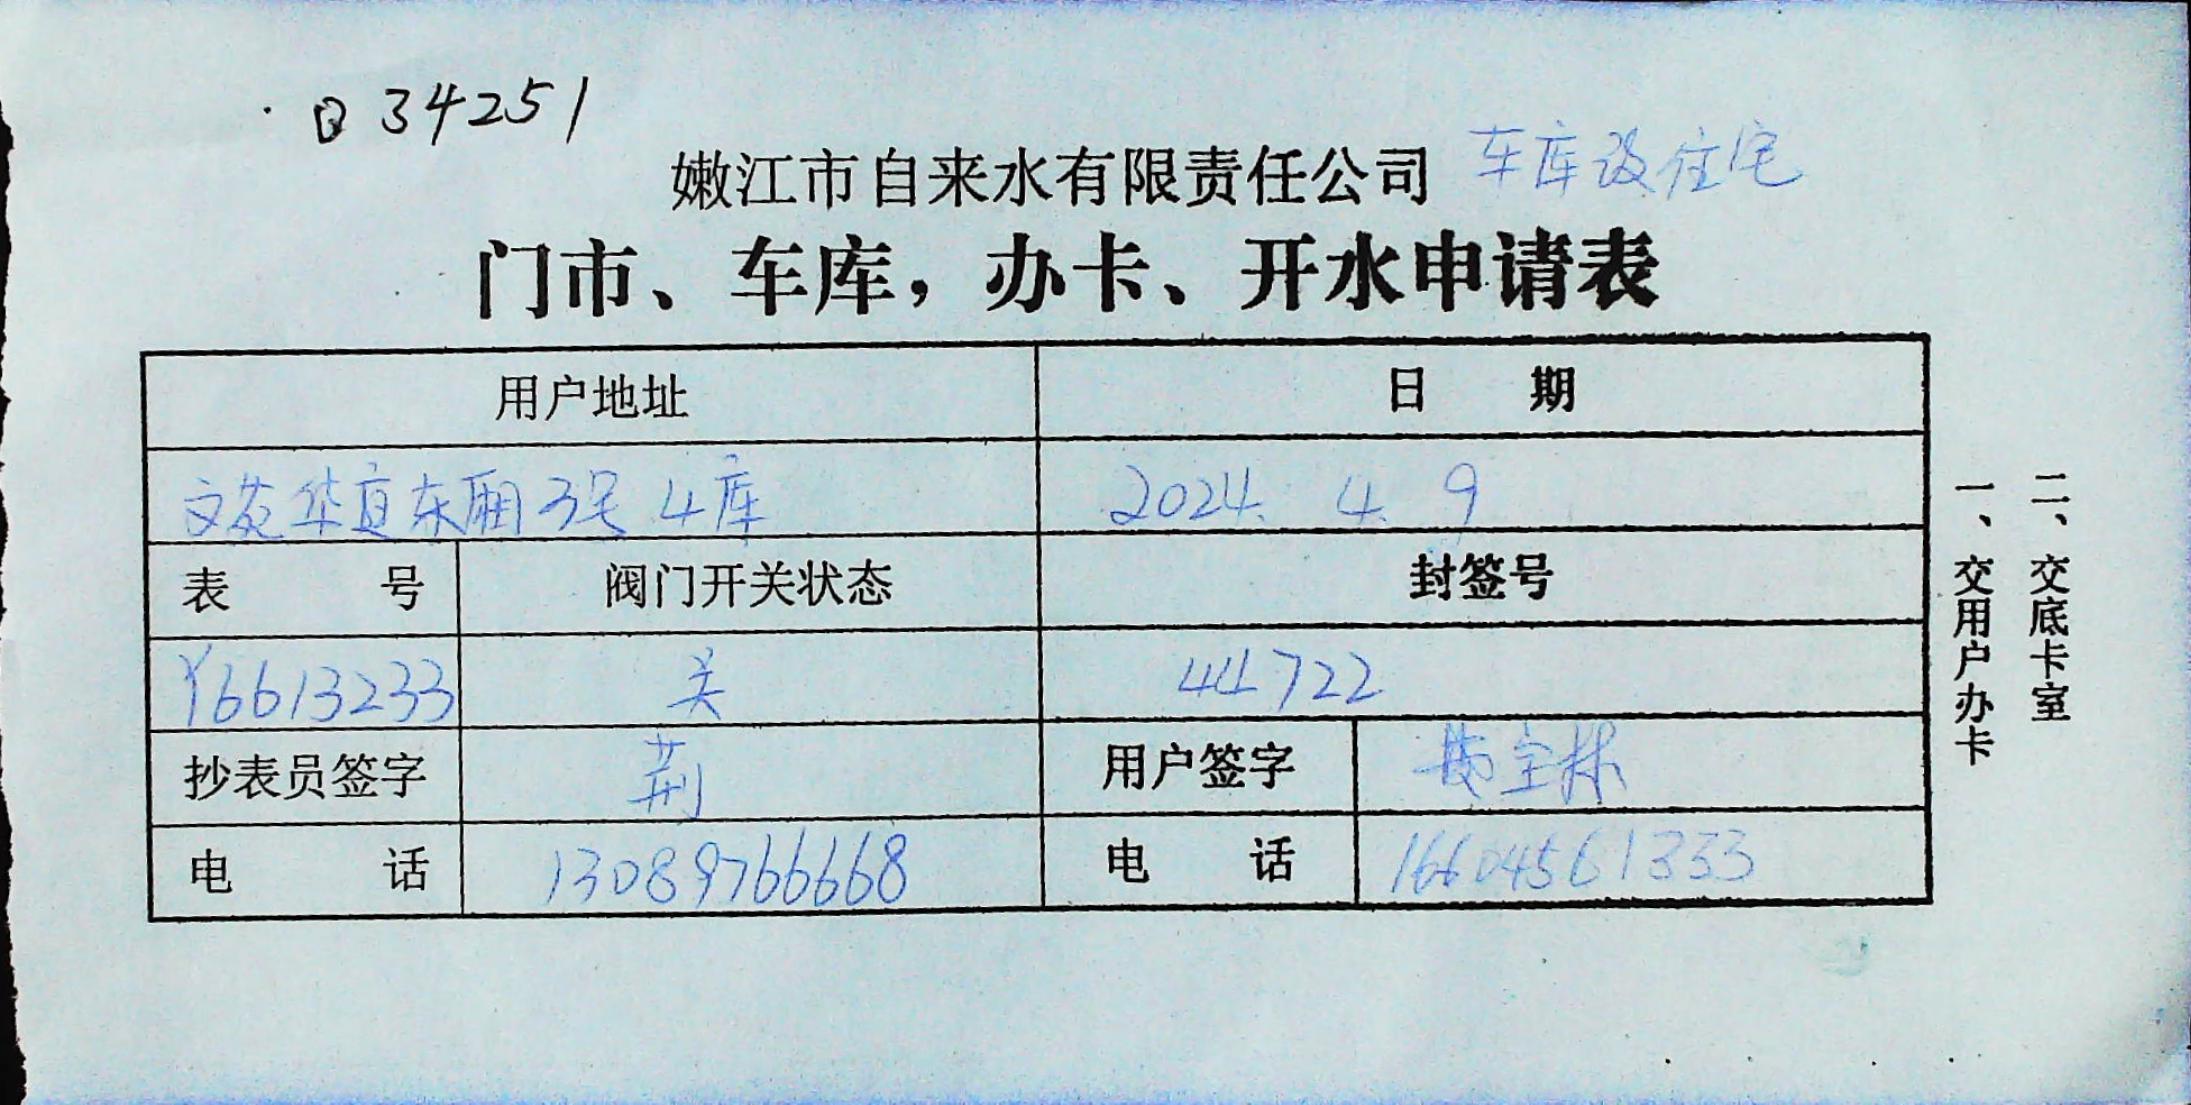 034251
嫩江市自来水有限责任公司 车库改住宅
门市、车库，办卡、开水申请表
用户地址 日 期
文苑华宜东厢3号4库 2024. 4. 9
表 号 阀门开关状态 封签号
Y6613233 关 44722
抄表员签字 荆 用户签字
电 话 13089766668 电 话 16604561333
一、交用户办卡
二、交底卡室